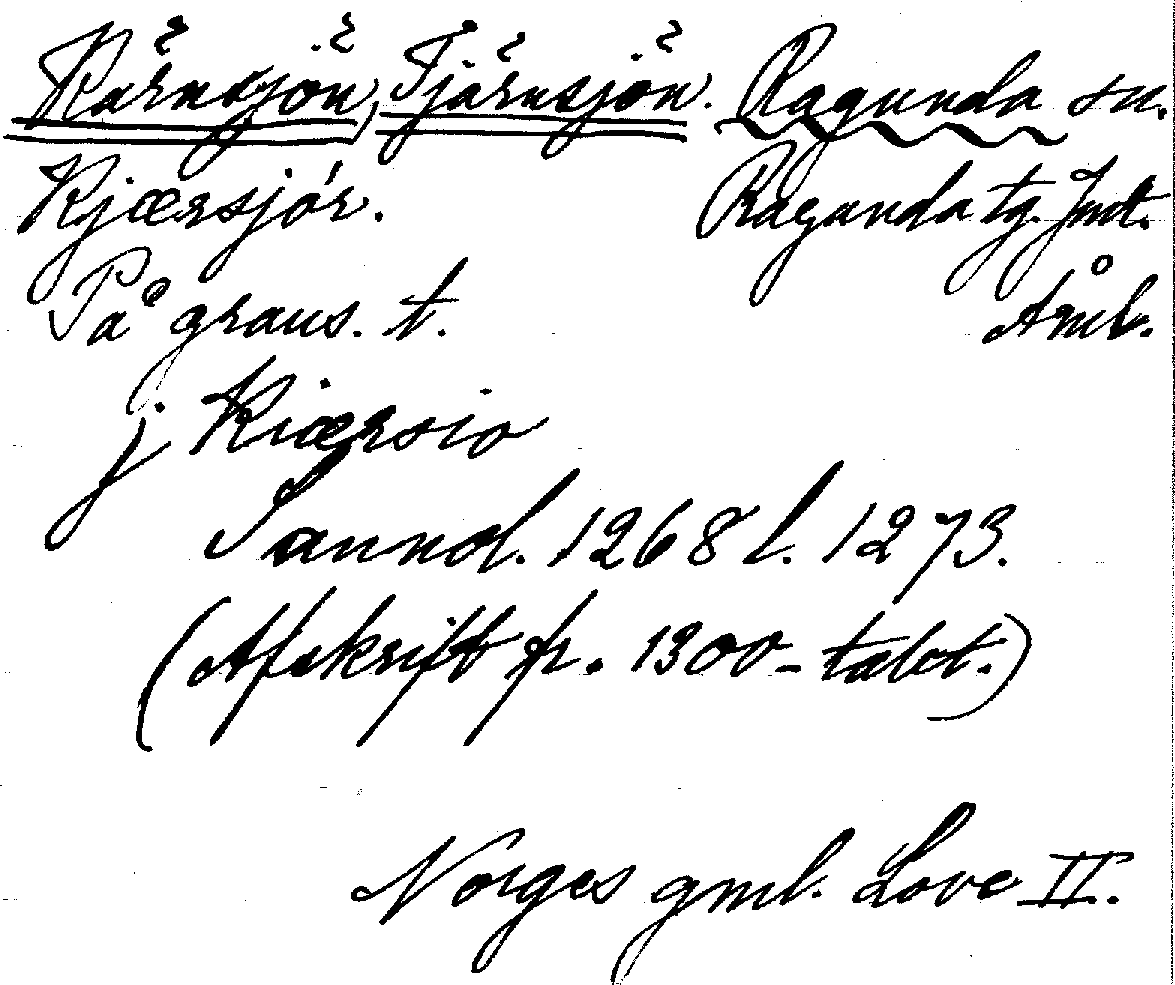 Kärnsjön, Tjärnsjön. Ragunda sn.
Kjærsjór. Ragunda tg. Jmt.
På grans. t. Åml.
j Kiærsio
Sannol. 1268 l. 1273.
(Afskrift fr. 1300-talet.)
Norges gml. Love II.